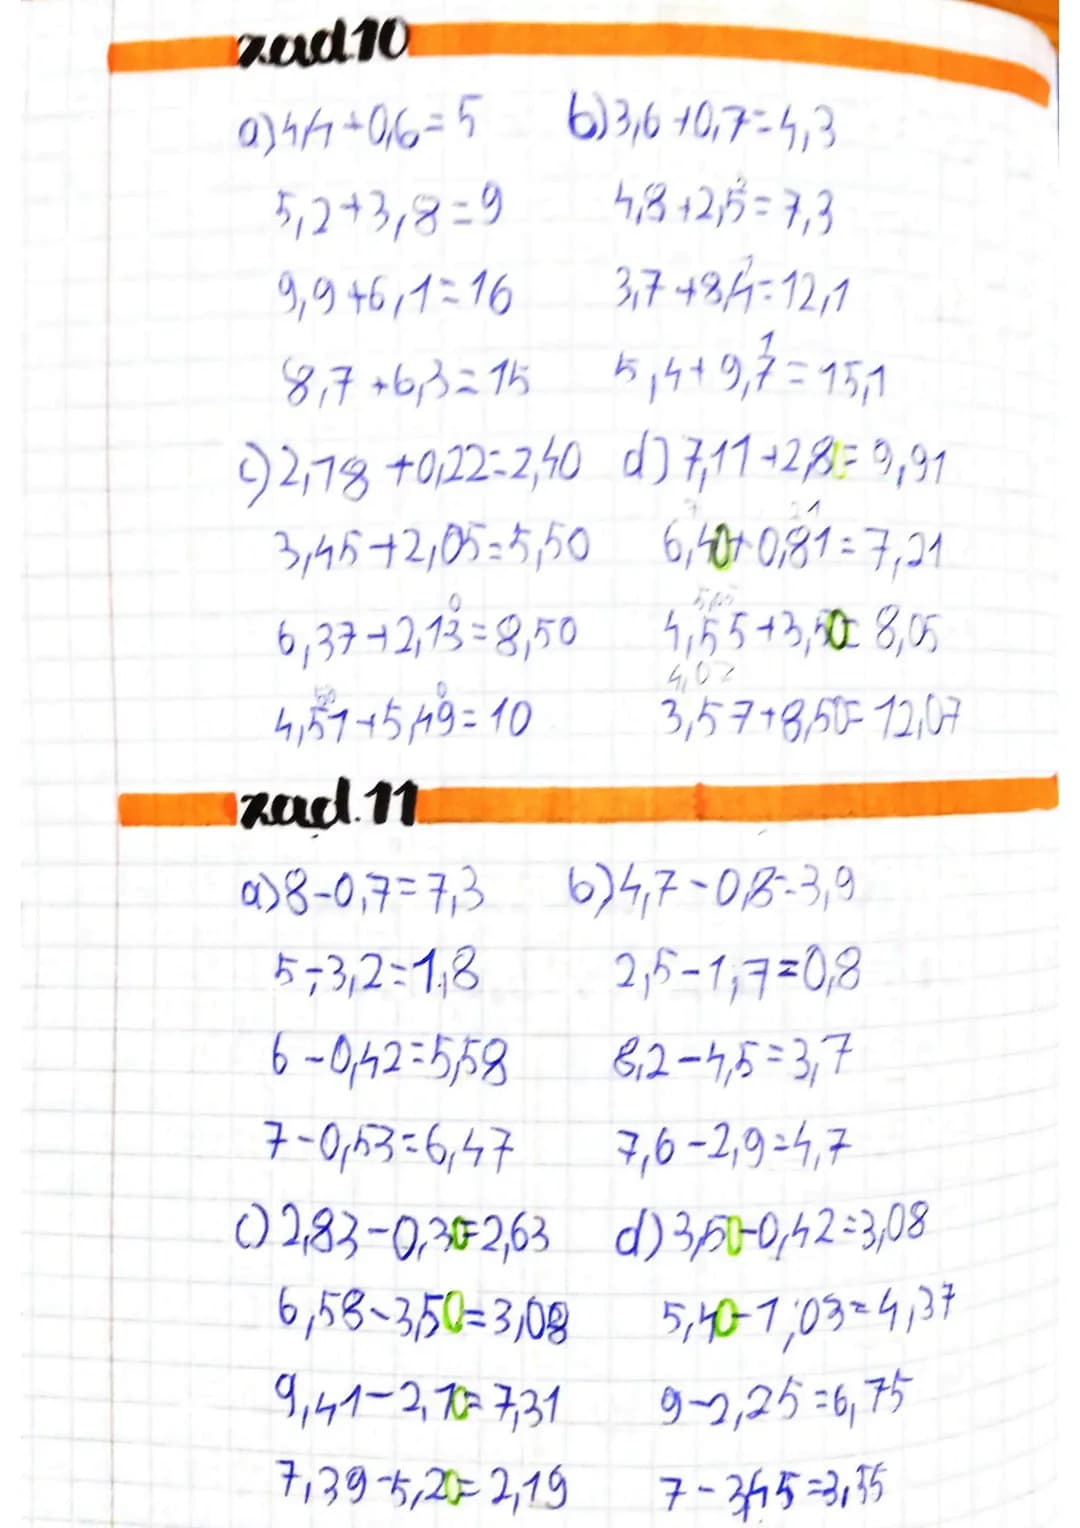 zad.10
a) 4,4+0,6=5 b) 3,6+0,7=4,3
5,2+3,8=9 4,8+2,5=7,3
9,9+6,1=16 3,7+8,4=12,1
8,7+6,3=15 5,4+9,7=15,1
c) 2,18+0,22=2,40 d) 7,11+2,80=9,91
3,45+2,05=5,50 6,40+0,81=7,21
6,37+2,13=8,50 4,55+3,50=8,05
4,51+5,49=10 3,57+8,50=12,07
zad.11
a) 8-0,7=7,3 b) 4,7-0,8=3,9
5-3,2=1,8 2,5-1,7=0,8
6-0,42=5,58 8,2-4,5=3,7
7-0,53=6,47 7,6-2,9=4,7
c) 2,83-0,30=2,63 d) 3,50-0,42=3,08
6,58-3,50=3,08 5,40-1,03=4,37
9,41-2,10=7,31 9-2,25=6,75
7,39-5,20=2,19 7-3,45=3,55